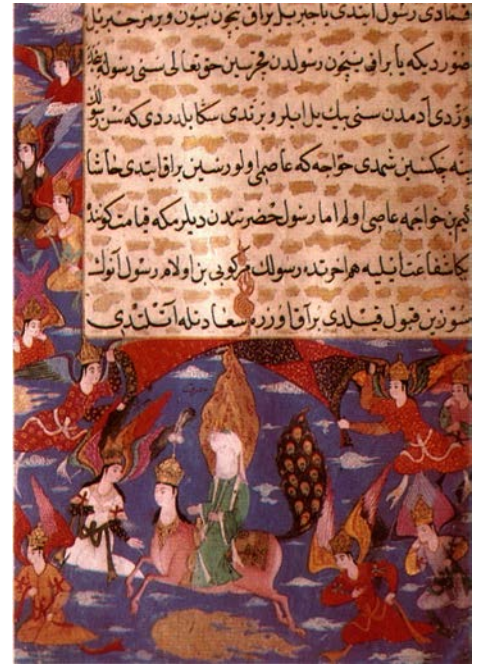 قمادی رسول ایتدی یا جبریل براق نیچون بیون ویرمز جبریل
صوردیکه یا براق نیچون رسولدن قچرسین حق تعالی سنی رسوله
آدمدن سنی بیك ییل ایلرو سکا بلدردی که سن
بنه جکسین شمدی خواجه که عاصی اولورسین براق ایتدی حاشا
کیم بن خواجه عاصی اولم اما رسول حضرتندن دیلرمکه قیامت کونند
بکا شفاعت ایلیه هم آخرتده رسولك مرکوبی بن اولام رسول آنوك
سوزین قبول قیلدی براق اوزره سعادتله آتلندی